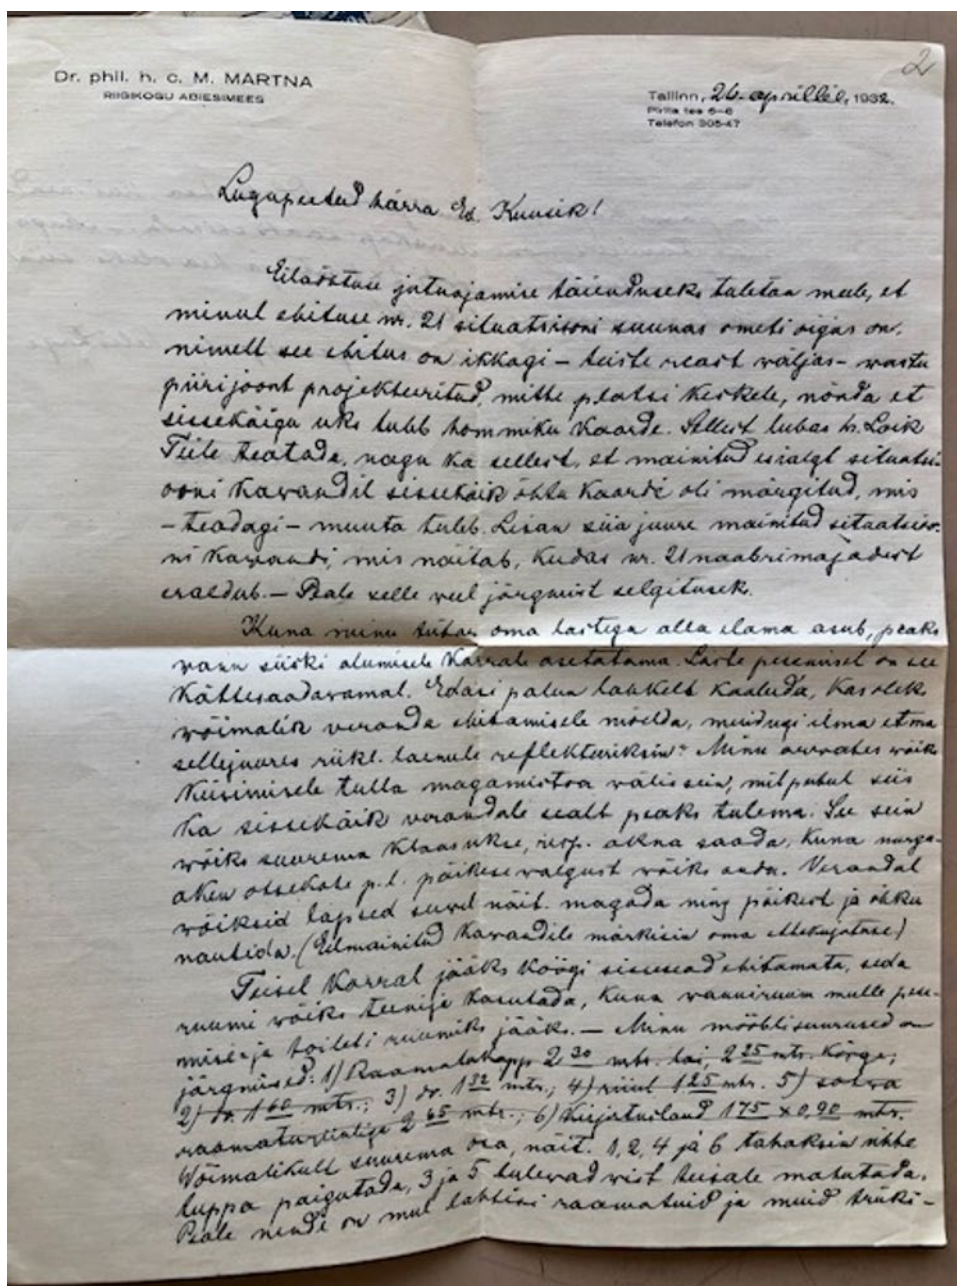 2
Dr. phil. h. c. M. MARTNA
RIIGIKOGU ABIESIMEES
Tallinn, 26. aprillil, 1932.
Pirita tee 6–6
Telefon 305-47
Lugupeetud härra Ed. Kuusik!
Eilaõhtuse jutuajamise täienduseks tuletan meele, et
minul ehituse nr. 21 situatsiooni suunas ometi õigus on,
nimelt see ehitus on ikkagi – teiste reast wäljas – wastu
piirijoont projekteeritud, mitte platsi keskele, nõnda et
sissekäigu uks tuleb hommiku kaarde. Sellest lubas h.
Teile teatada, nagu ka sellest, et mainitud esialgt situatsi-
ooni kawandil sissekäik õhtu kaarde oli märgitud, mis
– teadagi – muuta tuleb. Lisan siia juure mainitud situatsioo-
ni kawandi, mis näitab, kudas nr. 21 naabrimajadest
eraldub. – Peale selle weel järgmist selgituseks.
Kuna minu tütar oma lastega alla elama asub, peaks
wann siiski alumisele korrale asetatama. Laste pesemisel on see
kättesaadawamal. Edasi palun lahkelt kaaluda, kas oleks
wõimalik veranda ehitamisele mõelda, muidugi ilma et ma
sellejuures riikl. laenule reflekteeriksin? Minu arwates wõiks
küsimisele tulla magamistoa wälissein, mil puhul siis
ka sissekäik verandale sealt peaks tulema. See sein
wõiks suurema klaasukse, resp. akna saada, kuna nurga-
aken otsekohe p. l. päikesewalgust wõiks anda. Verandal
wõiksid lapsed suwel näit. magada ning päikest ja õhku
nautida. (Eelmainitud kawandile märkisin oma ettekujutuse)
Teisel korral jääks köögi sissesead ehitamata, seda
ruumi wõiks teenija kasutada, kuna wanniruum mulle pese-
mise- ja toileti ruumiks jääks. – Minu mööblisuurused on
järgmised: 1) Raamatukapp 2 30 mtr. lai, 2 25 mtr. kõrge;
2) dr. 1 60 mtr.; 3) dr. 1 32 mtr.; 4) riiul 1 25 mtr. 5) sohwa
2 65 mtr.; 6) Kirjutuslaud 1 75 × 0,90 mtr.
Wõimalikult suurema osa, näit. 1, 2, 4 ja 6 tahaksin ühte
tuppa paigutada, 3 ja 5 tulewad wist teisale mahutada.
Peale nende on mul lahtisi raamatuid ja muid trüki-